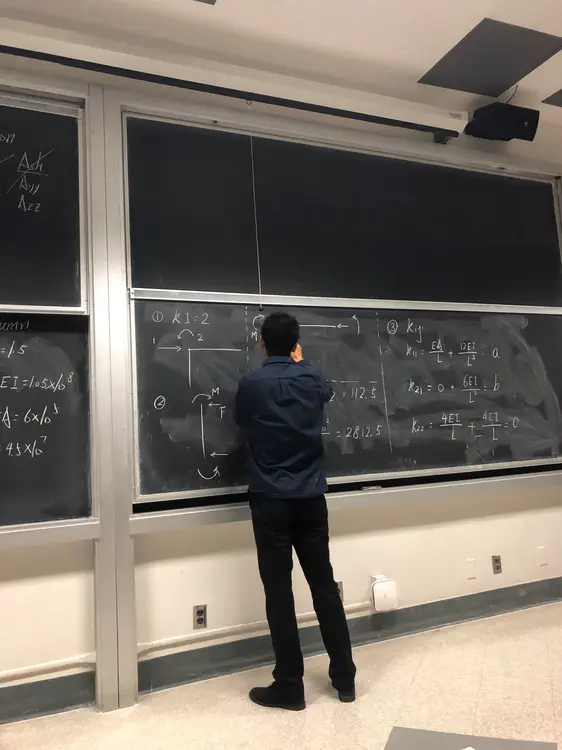 Axx
Ayy
Azz
= 1.5
EI = 1.05x10⁸
= 6x10⁵
= 4.5x10⁷
① KI = 2
1
2
②
M
F
M
= 112.5
= 2812.5
③ Kij
K₁₁ = EA/L + 12EI/L = a
K₂₁ = 0 + 6EI/L = b
K₂₂ = 4EI/L + 4EI/L = C